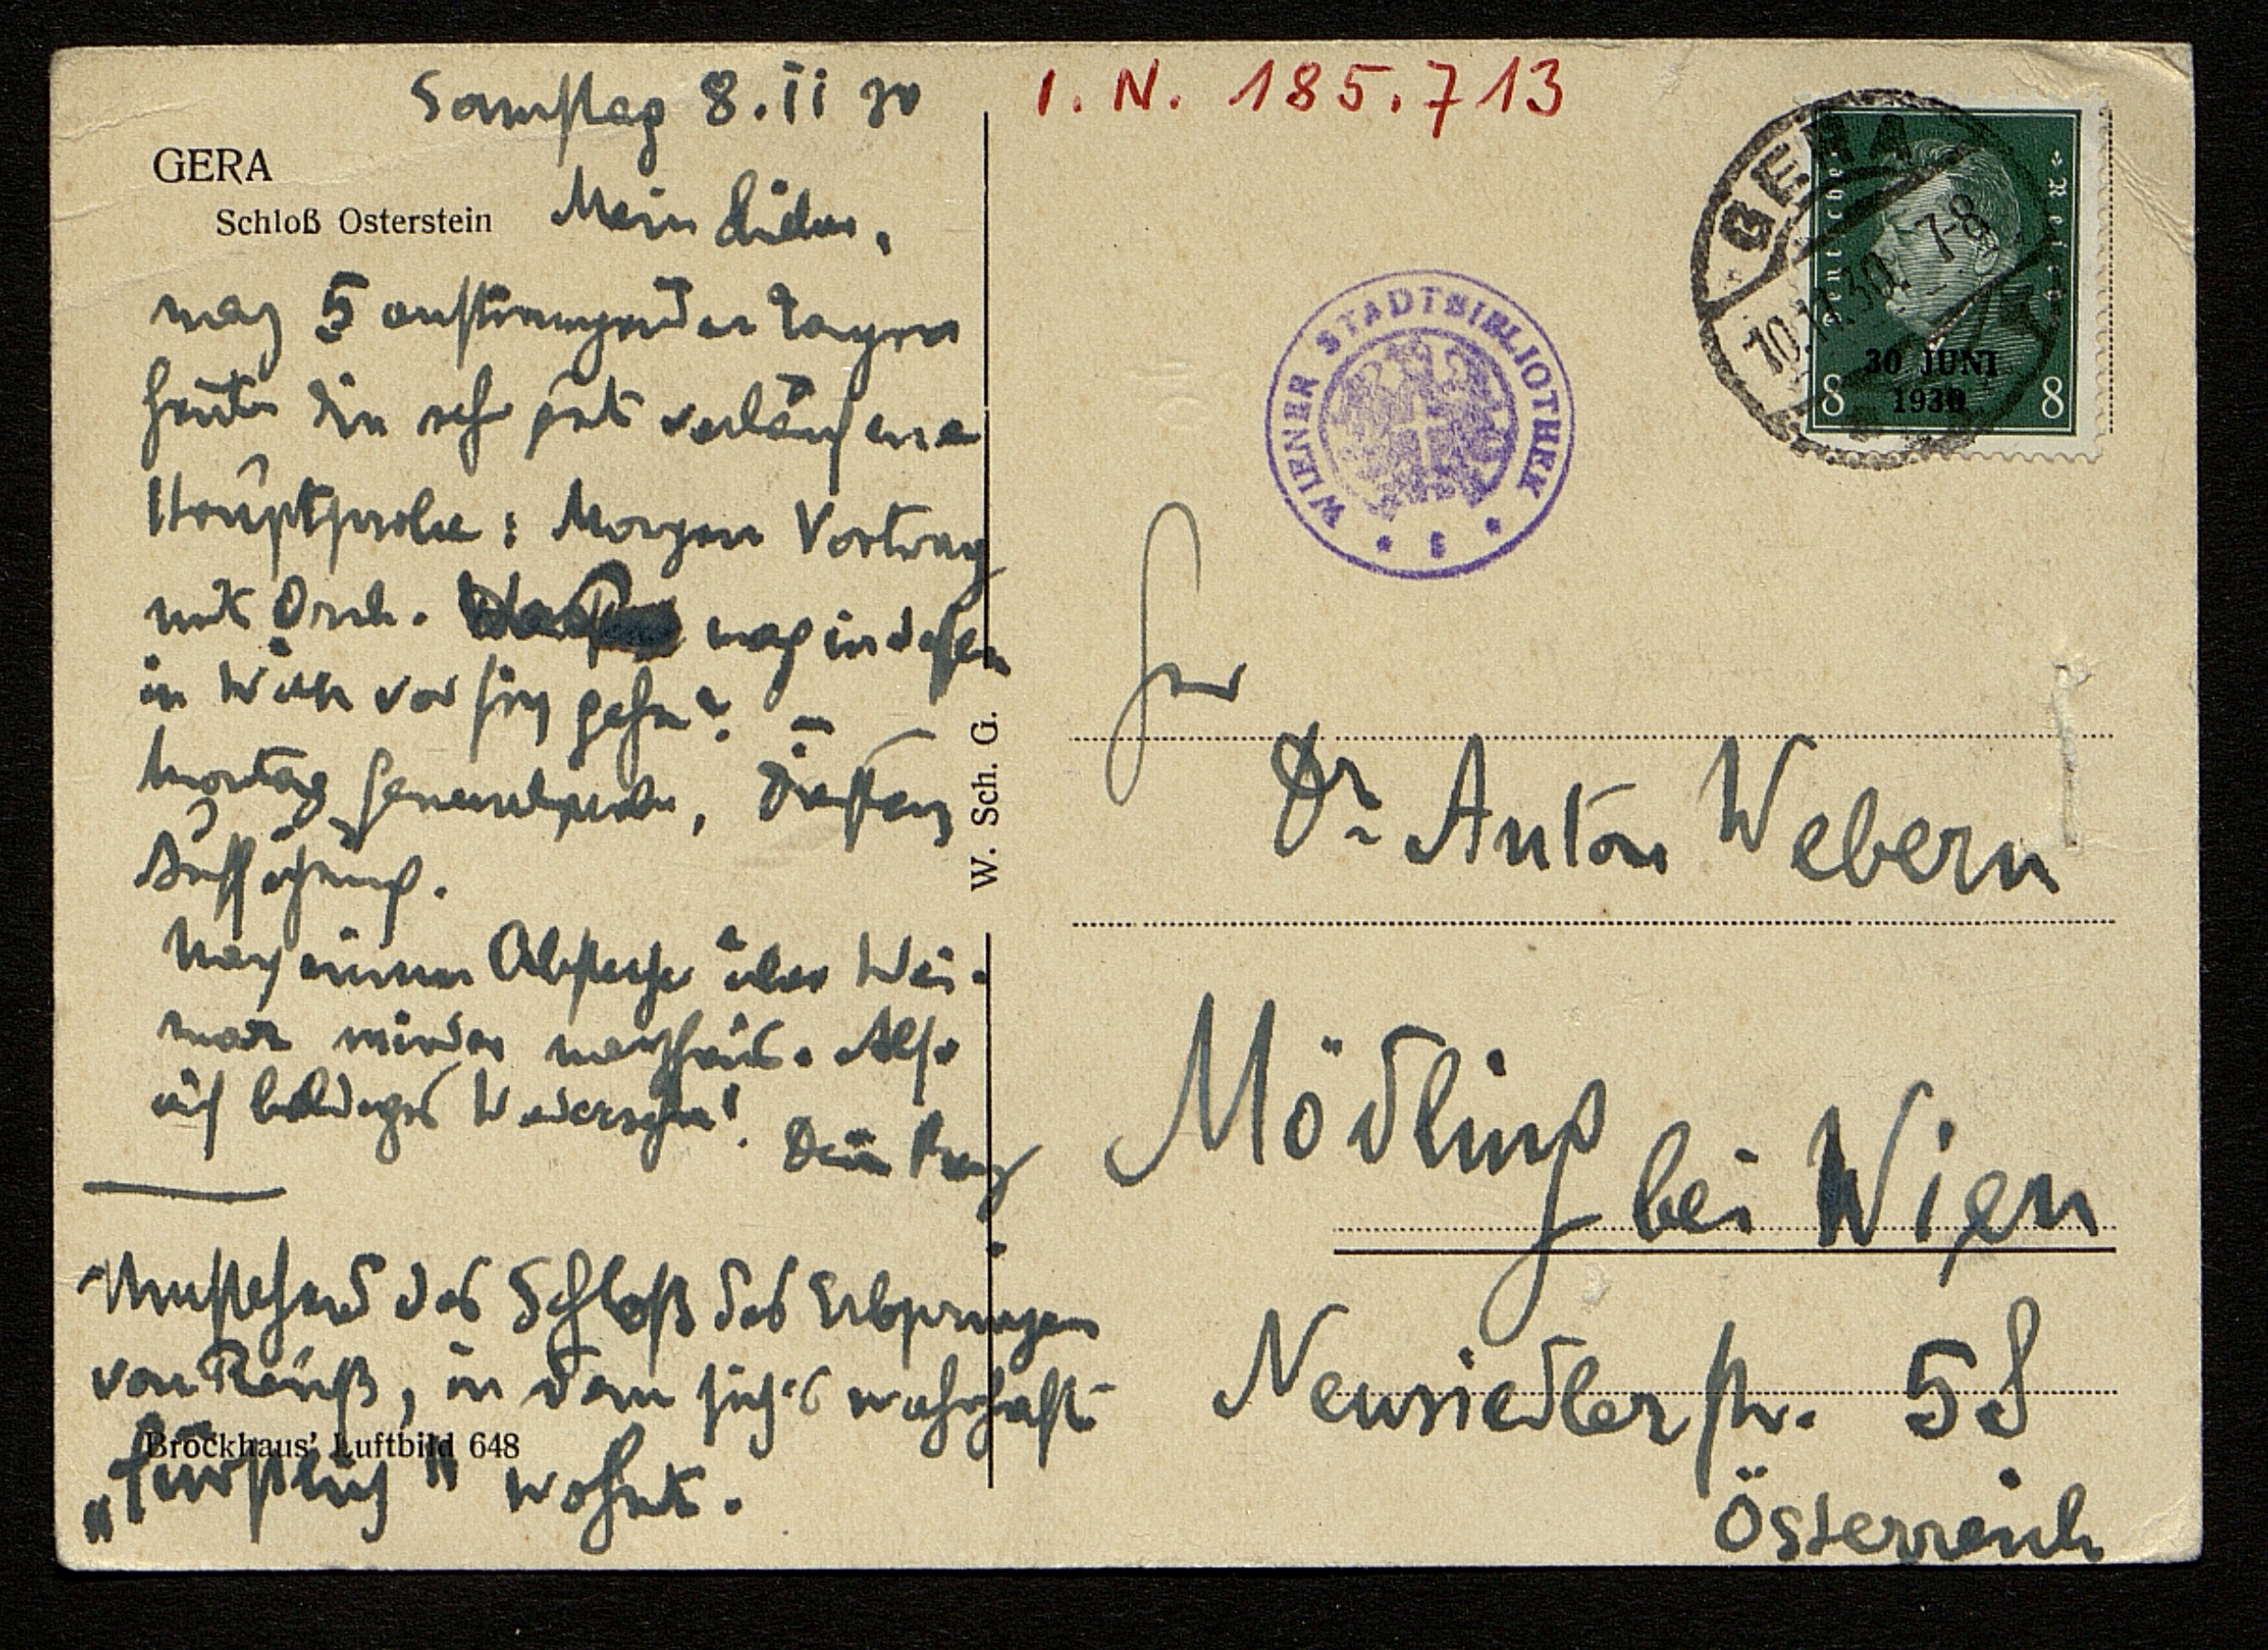 Samstag 8. II 30
GERA
Schloß Osterstein
Mein Lieber,
nach 5 anstrengenden Tagen
heute die sehr gut verlaufene
Hauptprobe: Morgen Vortrag
mit Orch. was indessen
in Wien vor sich geht?
Montag Generalprobe, Dienstag
Aufführung.
Nach einem Abstecher über Wei-
mar wieder nachhaus. Also
auf baldiges Wiedersehn!
Dein
Umstehend das Schloß des Erbprinzen
von Reuß, in dem sich's wahrhaft
„fürstlich" wohnt.
Brockhaus' Luftbild 648
W. Sch. G.
I. N. 185.713
WIENER STADTBIBLIOTHEK
GERA
10.11.30. 7-8
Deutsches Reich
30 JUNI
1930
8 8
Herr
Dr Anton Webern
Mödling
bei Wien
Neusiedlerstr. 58
Österreich